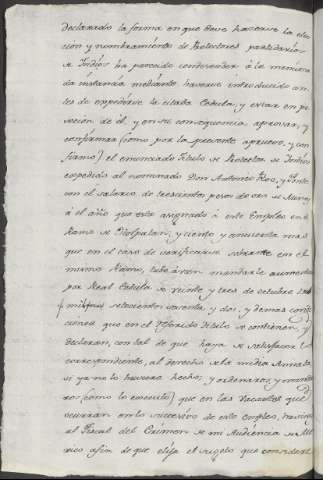 declarado la forma en que deve hacerse la elec
cion y nombramiento de Protectores partidarios
de Indios ha parecido condescender à la menciona
da instancia mediante haverse introducido an
tes de expedirse la citada Cedula, y estar en po
sesion de él, y en su consequencia aprovar, y
confirmar (como por la presente apruevo, y con
firmo) el enunciado titulo de Protector de Indios
expedido al nominado Don Antonio Rios, y
con el salario de trescientos pesos de oro de
à el año que esta asignado à este Empleo en el
Ramo de Tributos, y ciento y cincuenta mas
que en el caso de verificarse sobrante en el
mismo Ramo, tube à vien mandarle aumentar
por Real Cedula de veinte y tres de octubre de
mil setecientos quarenta, y dos, y demas condi
ciones que en el referido titulo se contienen, y
declaran, con tal de que haya de satisfacer lo
correspondiente, al derecho de la media Annata
si ya no lo huviere hecho; y ordenaros, y manda
ros (como lo executo) que en las vacantes que
ocurran en lo succesivo de este empleo, haviseis
al Fiscal del Crimen de mi Audiencia de Me
xico afin de que elija el sugeto que considere